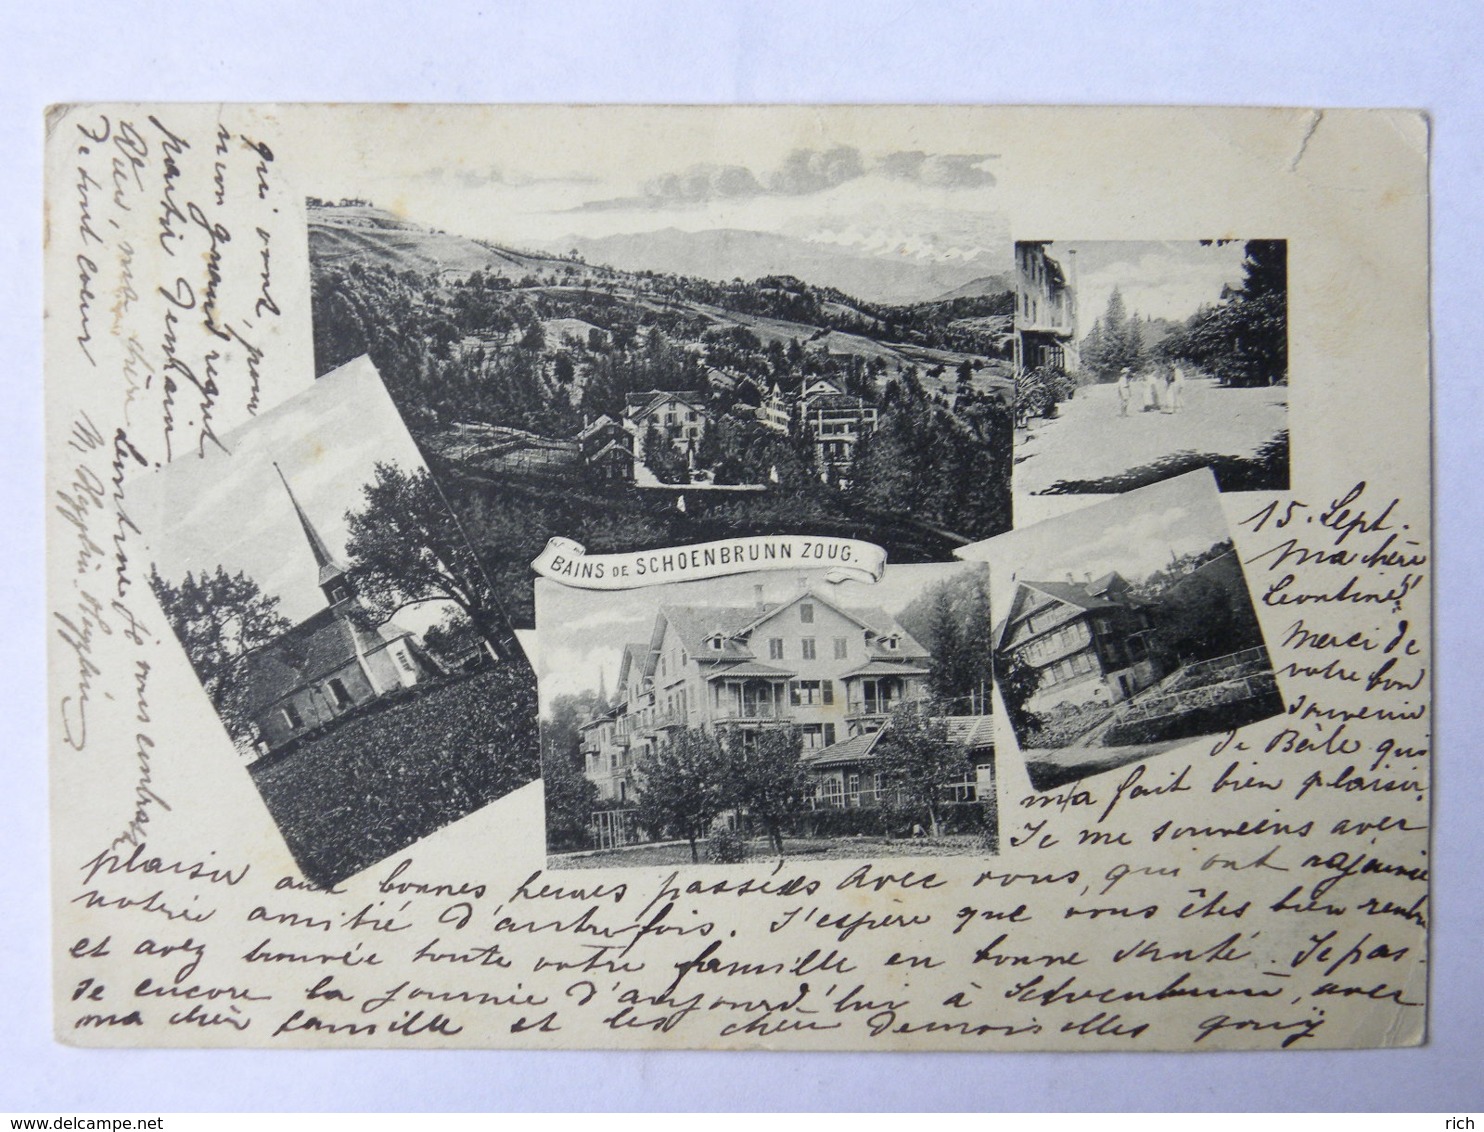 BAINS DE SCHOENBRUNN ZOUG.
15. Sept.
Ma chère
Leontine!
Merci de
votre bon
souvenir
de Bâle qui
m'a fait bien plaisir.
Je me souveins avec
plaisir aux bonnes heures passées avec vous, qui ont rajeunie
notrée amitié d'autrefois. J'espère que vous êtes bien rentré
et avez trouvée toute votre famille en bonne santé. Je pas-
se encore la journée d'aujourd'hui à Schoenbrunn, avec
ma chère famille et les chère Demoiselles
qui vont, pour
mon grand regret
partir demain.
Adieu, ma chère Leontine, je vous embrasse
de tout cœur
www.delcampe.net
rich